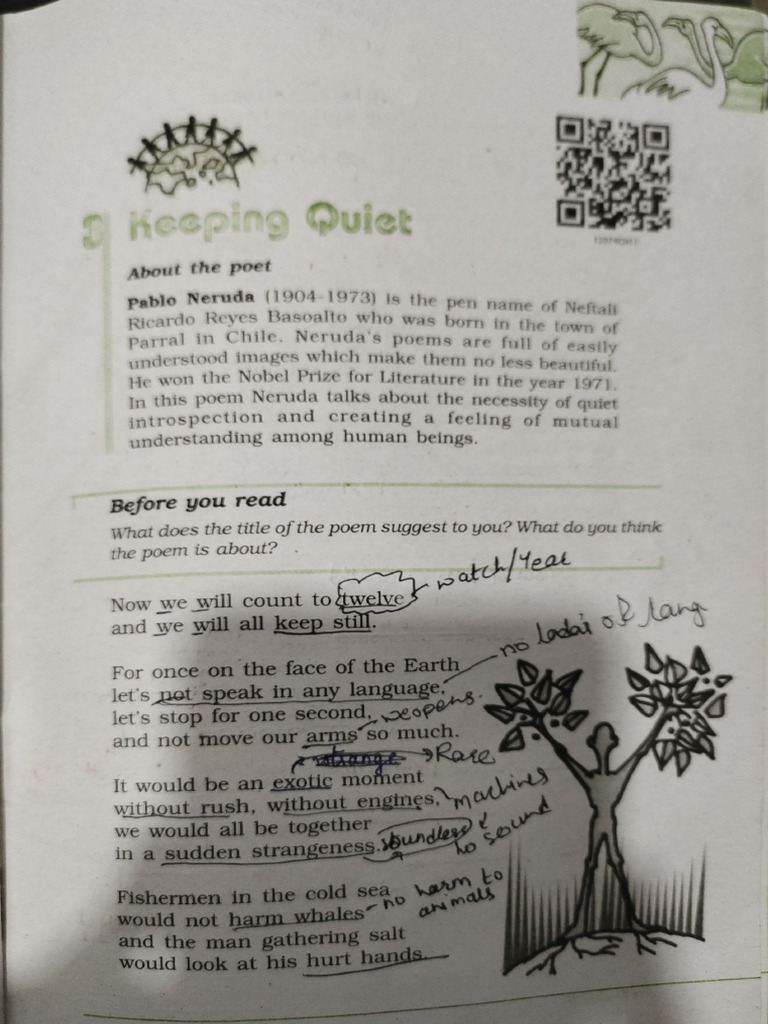 3 Keeping Quiet
About the poet
Pablo Neruda (1904-1973) is the pen name of Neftali
Ricardo Reyes Basoalto who was born in the town of
Parral in Chile. Neruda's poems are full of easily
understood images which make them no less beautiful.
He won the Nobel Prize for Literature in the year 1971.
In this poem Neruda talks about the necessity of quiet
introspection and creating a feeling of mutual
understanding among human beings.
Before you read
What does the title of the poem suggest to you? What do you think
the poem is about?
Now we will count to twelve watch/Year
and we will all keep still.
no ladai of lang
For once on the face of the Earth
let's not speak in any language,
let's stop for one second, weopens.
and not move our arms so much.
strange Rare
It would be an exotic moment
without rush, without engines, machines
we would all be together
in a sudden strangeness. soundless no sound
Fishermen in the cold sea
would not harm whales no harm to
animals
and the man gathering salt
would look at his hurt hands.